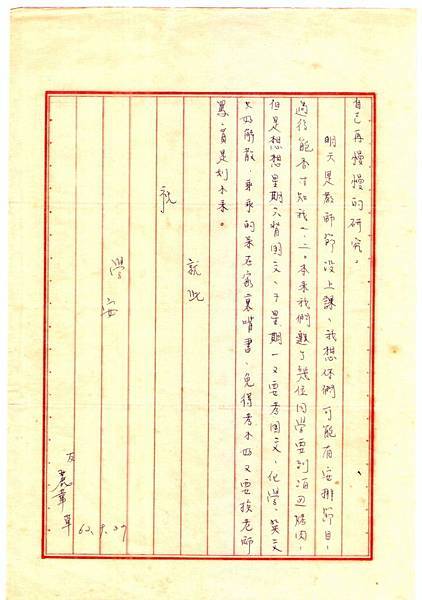 自己再慢慢的研究。
明天是教師節沒上課、我想你們可能有安排節目，
過後能否寸知我一、二。本來我們邀了幾位同學要到河邊烤肉，
但是想想星期六背國文、于星期一又要考國文、化學、英文
只好解散，乖乖的呆在家裏啃書，免得考不好又要挨老師
罵，真是划不來。
就此
祝
學
安
友
草
62.9.27